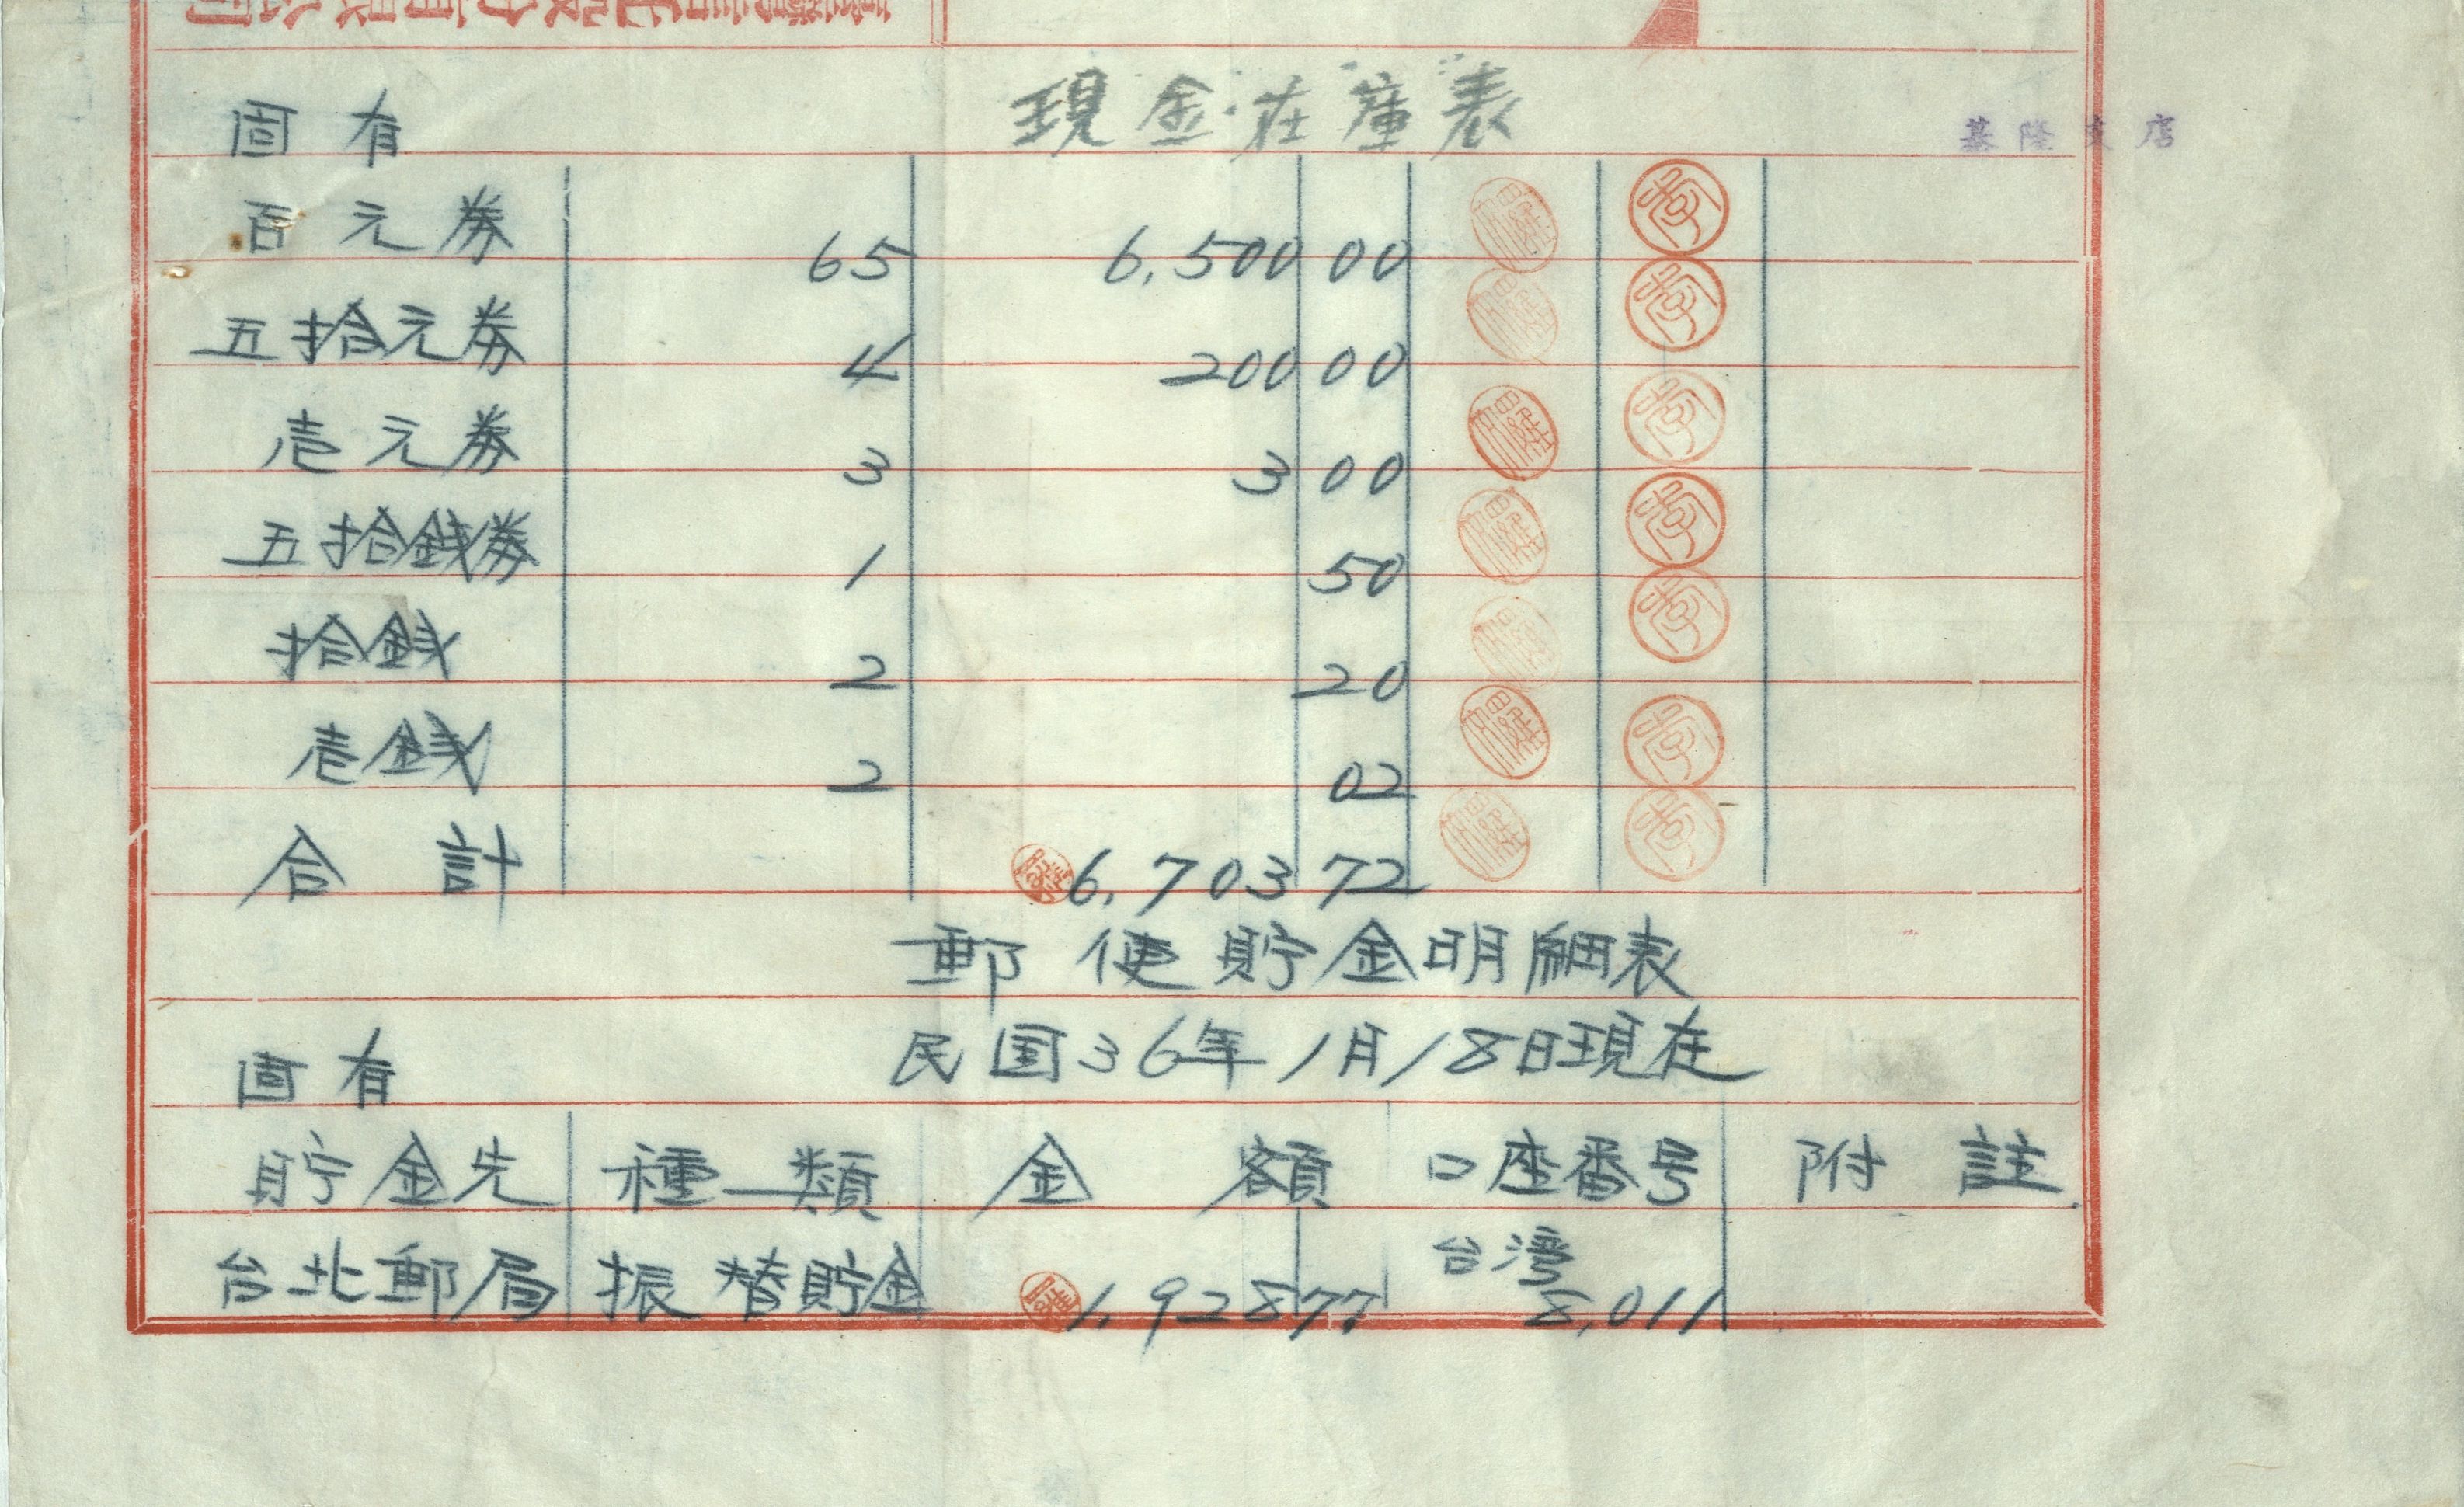 現金在庫表
固有
基隆支店
百元券 65 6,500 00
五拾元券 4 200 00
壱元券 3 3 00
五拾銭券 1 50
拾銭 2 20
壱銭 2 02
合計 6,703 72
郵便貯金明細表
民国36年1月18日現在
固有
貯金先 種類 金額 口座番号 附註
台北郵局 振替貯金 1,928 77 台湾 8,011